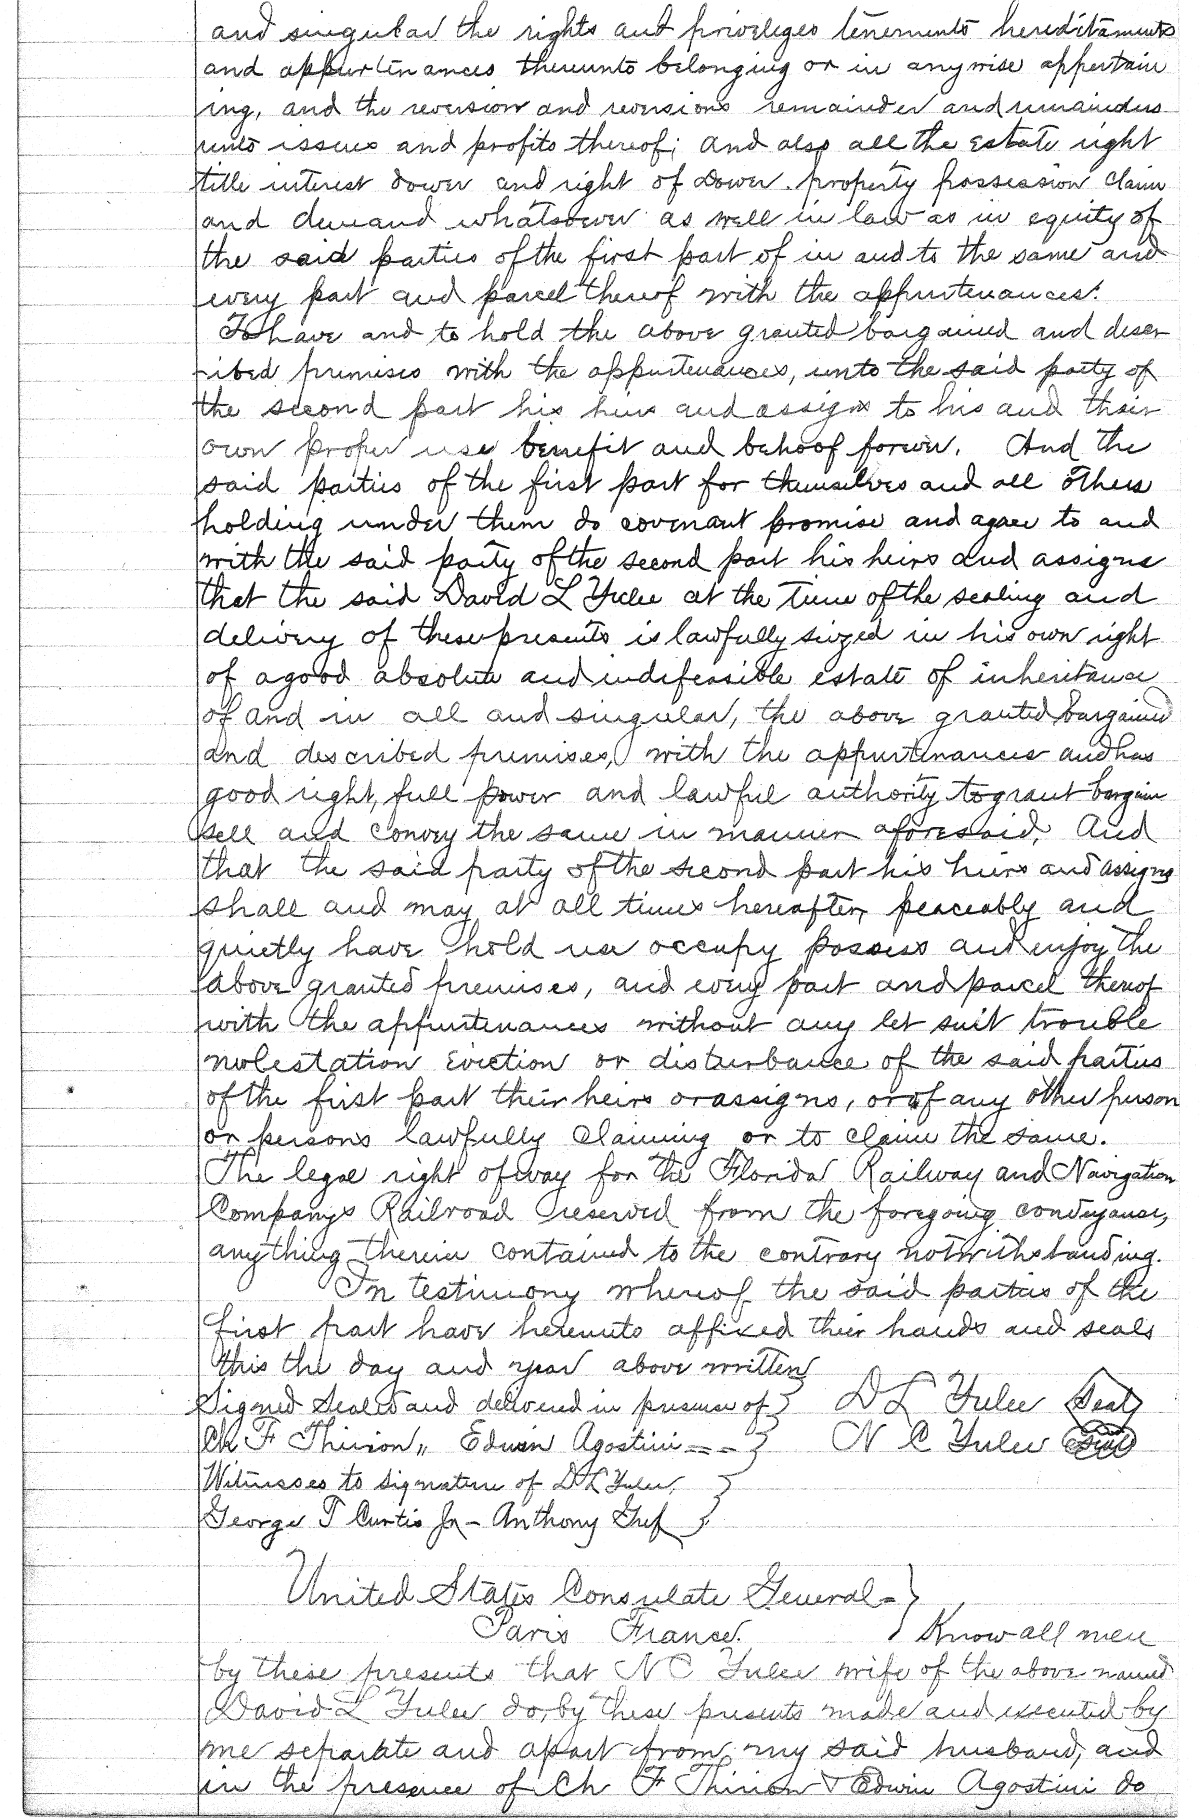 and singular the rights and privileges tenements hereditaments
and appurtenances thereunto belonging or in anywise appertain
ing, and the reversion and reversions remainder and remainders
rents issues and profits thereof; and also all the Estate right
title interest dower and right of Dower. property possession claim
and demand whatsoever as well in law as in equity of
the said parties of the first part of in and to the same and
every part and parcel thereof with the appurtenances.
To have and to hold the above granted bargained and descr
-ibed premises with the appurtenances, unto the said party of
the second part his heirs and assigns to his and their
own proper use benefit and behoof forever. And the
said parties of the first part for themselves and all others
holding under them do covenant promise and agree to and
with the said party of the second part his heirs and assigns
that the said David L Yulee at the time of the sealing and
delivery of these presents is lawfully seized in his own right
of a good absolute and indefeasible estate of inheritance
of and in all and singular, the above granted, bargained
and described premises, with the appurtenances and has
good right, full power and lawful authority to grant bargain
sell and convey the same in manner aforesaid. And
that the said party of the second part his heirs and assigns
shall and may at all times hereafter, peaceably and
quietly have hold use occupy possess and enjoy the
above granted premises, and every part and parcel thereof
with the appurtenances without any let suit trouble
molestation Eviction or disturbance of the said parties
of the first part their heirs or assigns, or of any other person
or persons lawfully claiming or to claim the same.
The legal right of way for the Florida Railway and Navigation
Companys Railroad reserved from the foregoing conveyance,
anything therein contained to the contrary notwithstanding.
In testimony whereof the said parties of the
first part have hereunto affixed their hands and seals
this the day and year above written
Signed Sealed and delivered in presence of } D L Yulee Seal
Ch F Thirion " Edwin Agostini } N C Yulee Seal
Witnesses to signature of D L Yulee, }
George T Curtis Jr - Anthony Gref }
United States Consulate General - }
Paris France. } Know all men
by these presents that N C Yulee wife of the above named
David L Yulee do, by these presents made and executed by
me separate and apart from my said husband, and
in the presence of Ch F Thirion & Edwin Agostini do